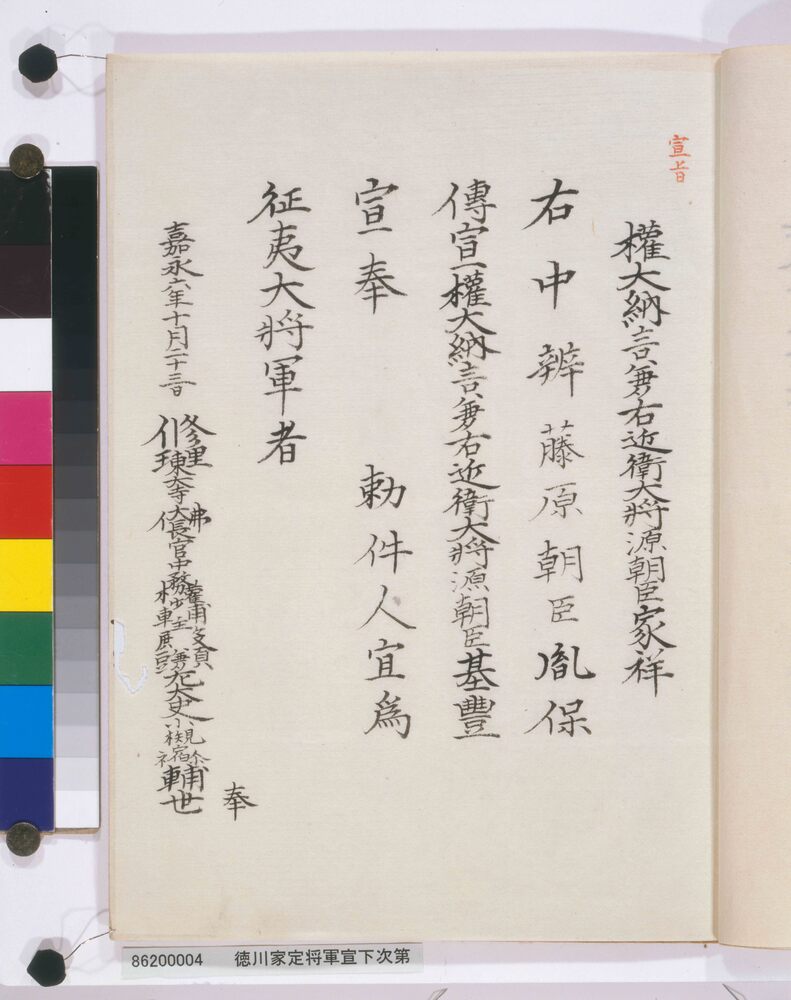 宣旨
權大納言兼右近衛大將源朝臣家祥
右中辨藤原朝臣胤保
傳宣權大納言兼右近衛大將源朝臣基豐
宣奉 勅件人宜爲
征夷大將軍者
嘉永六年十月二十三日 修理東大寺大佛長官中務少主殿頭兼左大史小槻宿祢輔世
奉
86200004 徳川家定将軍宣下次第